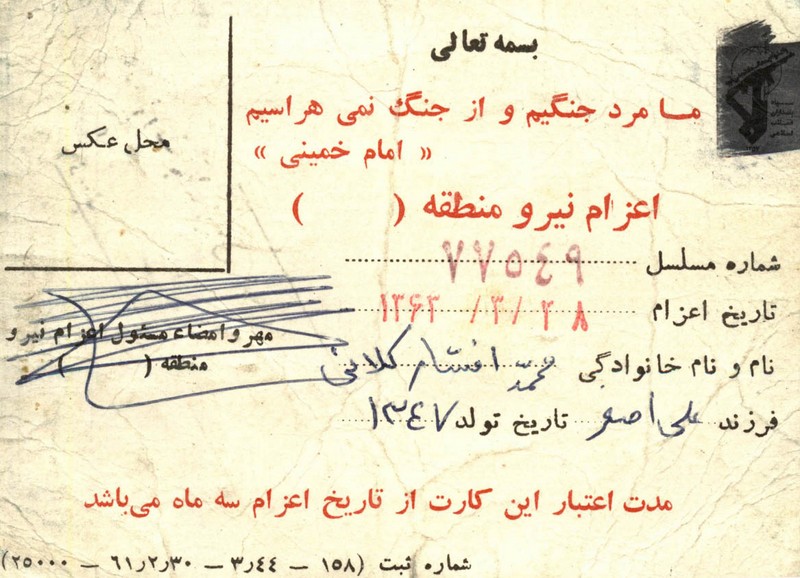 بسمه تعالی
ما مرد جنگیم و از جنگ نمی هراسیم
« امام خمینی »
محل عکس
اعزام نیرو منطقه (        )
شماره مسلسل ۷۷۵۴۹
تاریخ اعزام ۱۳۶۲ /۳/ ۲۸
نام و نام خانوادگی محمد افشار
فرزند علی اصغر تاریخ تولد ۱۳۴۷
مهر و امضاء مسئول اعزام نیرو
منطقه (        )
مدت اعتبار این کارت از تاریخ اعزام سه ماه می‌باشد
شماره ثبت (۱۵۸ — ۴۴ر۳ — ۳۰ر۲ر۶۱ — ۲۵۰۰۰)